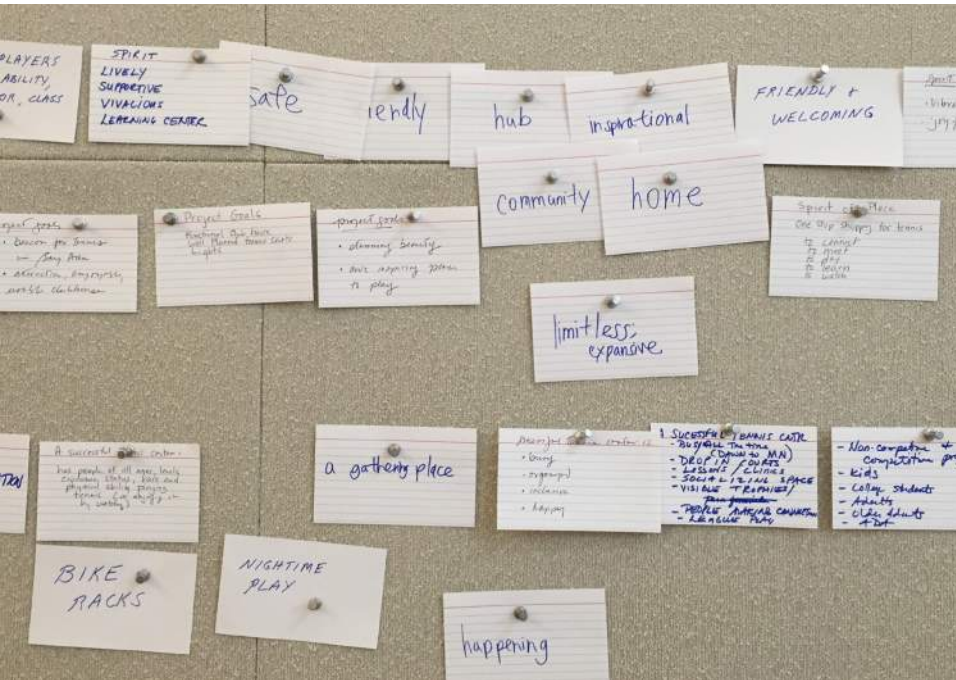 PLAYERS
ABILITY,
OR, CLASS
SPIRIT
LIVELY
SUPPORTIVE
VIVACIOUS
LEARNING CENTER
safe
iendly
hub
inspirational
FRIENDLY +
WELCOMING
community
home
project goals
• Beacon for tennis
in
Project Goals
well planned tennis courts
lights
project goals
• stunning beauty
• awe inspiring place
to play
Spirit of Place
One stop shopping for tennis
to connect
to meet
to play
to learn
to watch
limitless;
expansive
A successful center
has people of all ages, levels
status, race and
physical ability playing
tennis
a gathering place
• busy
• organized
• inclusive
• happy
SUCESSFUL TENNIS CNTR
- BUSY ALL The time
(DAWN to MN)
- DROP IN COURTS
- LESSONS / CLINICS
- SOCIALIZING SPACE
- VISIBLE TROPHIES/
- PEOPLE MAKING
- LEAGUE PLAY
- Non-competitive +
Competitive
- Kids
- College students
- Adults
- Older Adults
- ADA
BIKE
RACKS
NIGHTIME
PLAY
happening